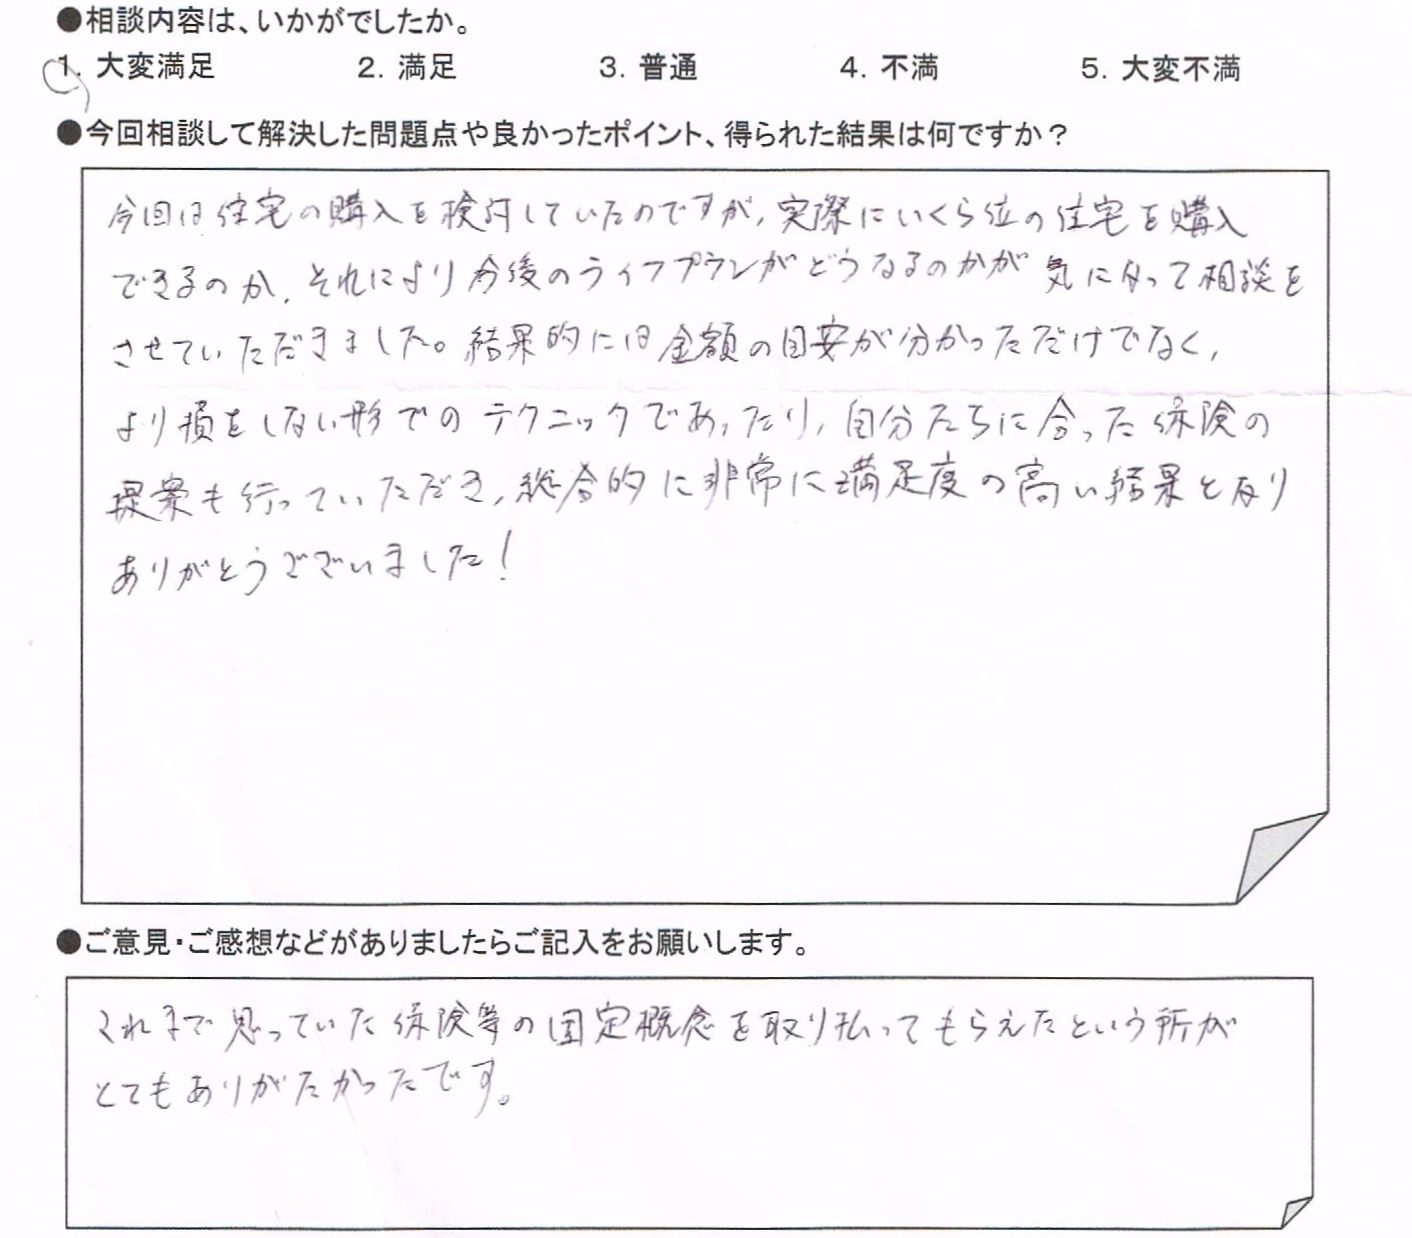 ●相談内容は、いかがでしたか。
1. 大変満足 2. 満足 3. 普通 4. 不満 5. 大変不満
●今回相談して解決した問題点や良かったポイント、得られた結果は何ですか？
今回は住宅の購入を検討していたのですが、実際にいくら位の住宅を購入
できるのか、それにより今後のライフプランがどうなるのかが気になって相談を
させていただきました。結果的には金額の目安が分かっただけでなく、
より損をしない形でのテクニックであったり、自分たちに合った保険の
提案も行っていただき、総合的に非常に満足度の高い結果となり
ありがとうございました！
●ご意見・ご感想などがありましたらご記入をお願いします。
これまで思っていた保険等の固定概念を取り払ってもらえたという所が
とてもありがたかったです。